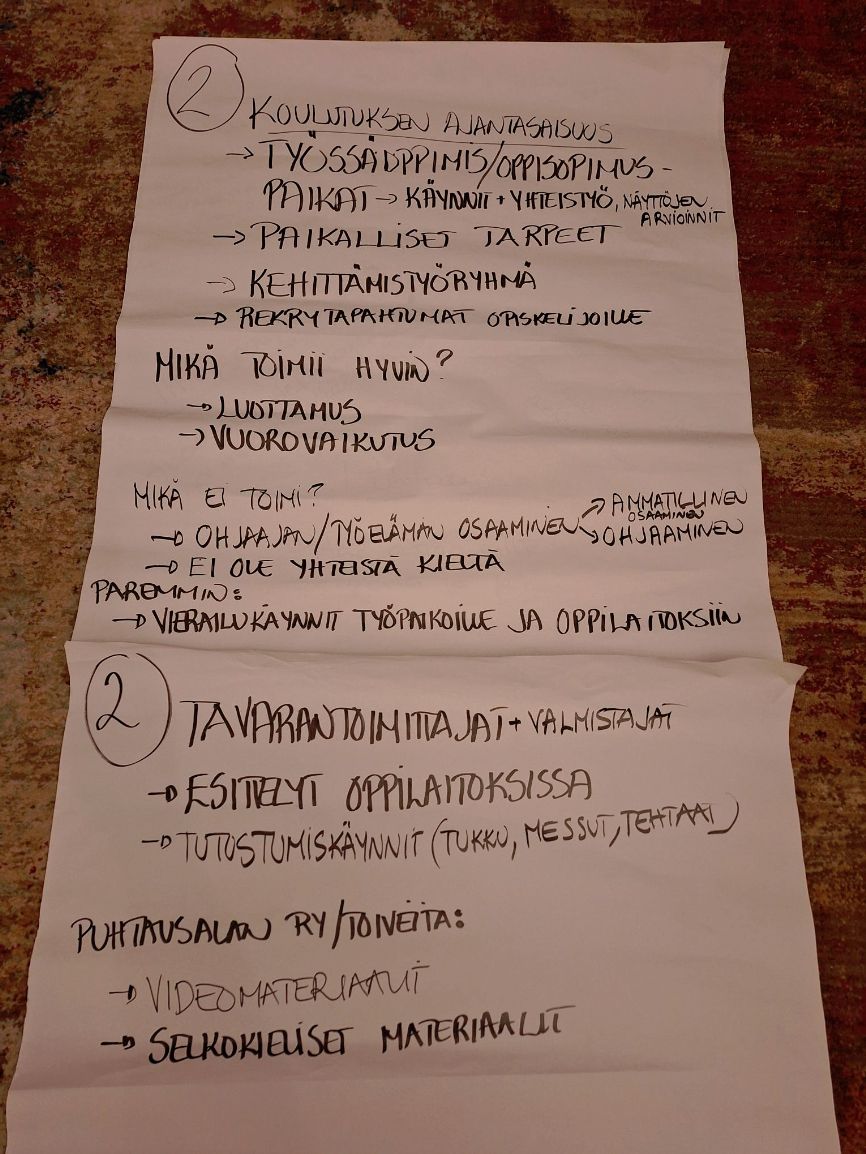 2
KOULUTUKSEN AJANTASAISUUS
→ TYÖSSÄOPPIMIS/OPPISOPIMUS-
PAIKAT → KÄYNNIT + YHTEISTYÖ, NÄYTTÖJEN
ARVIOINNIT
→ PAIKALLISET TARPEET
→ KEHITTÄMISTYÖRYHMÄ
→ REKRYTAPAHTUMAT OPISKELIJOILLE
MIKÄ TOIMII HYVIN?
→ LUOTTAMUS
→ VUOROVAIKUTUS
MIKÄ EI TOIMI?
→ OHJAAJAN/TYÖELÄMÄN OSAAMINEN
→ AMMATILLINEN
OSAAMINEN
→ OHJAAMINEN
→ EI OLE YHTEISTÄ KIELTÄ
PAREMMIN:
→ VIERAILUKÄYNNIT TYÖPAIKOILLE JA OPPILAITOKSIIN
2
TAVARANTOIMITTAJAT + VALMISTAJAT
→ ESITTELYT OPPILAITOKSISSA
→ TUTUSTUMISKÄYNNIT (TUKKU, MESSUT, TEHTAAT)
PUHTAUSALAN RY/TOIVEITA:
→ VIDEOMATERIAALIT
→ SELKOKIELISET MATERIAALIT